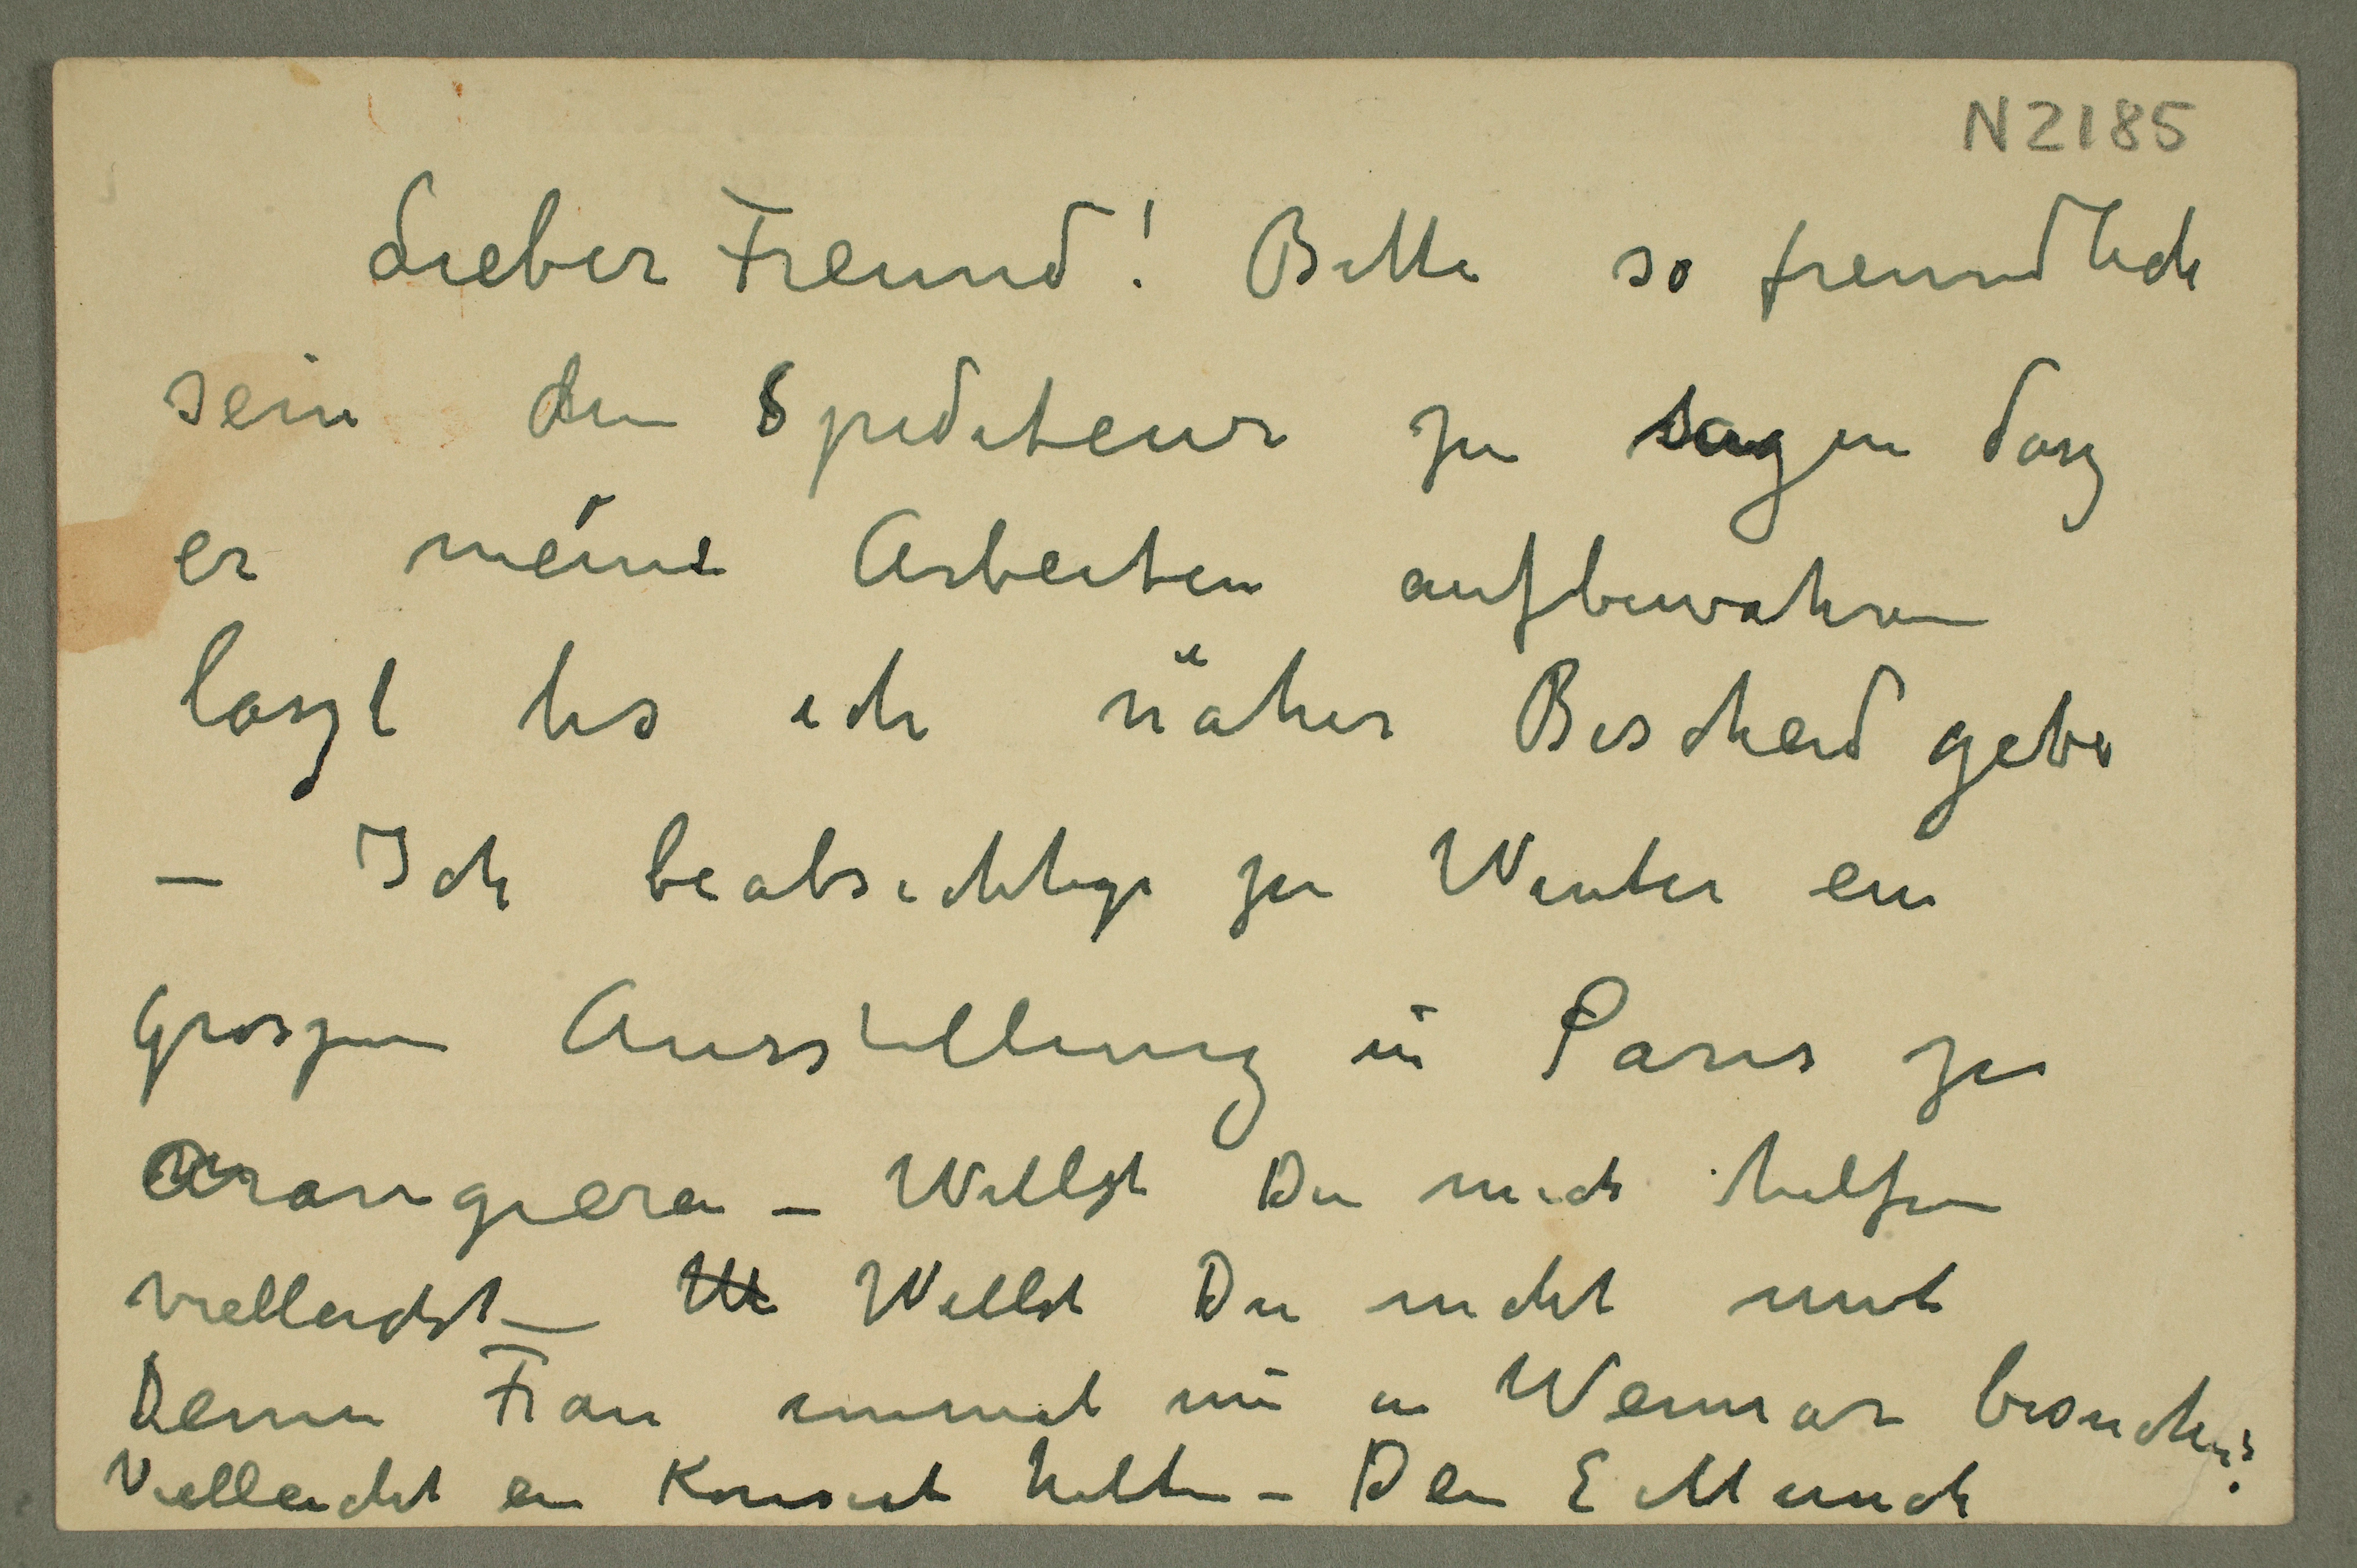 N 2185
Lieber Freund! Bitte so freundlich
sein dem Spediteur zu sagen dasz
er meine Arbeiten aufbewahren
laszt bis ich näher Bescheid gebe
– Ich beabsichtige zu Winter ein
groszen Ausstellung in Paris zu
arangieren – Willst Du mich helfen
vielleicht – Willst Du nicht mit
Deine Frau einmal mi in Weimar besuchen?
Vielleicht ein Konsert halten – Dein E Munch